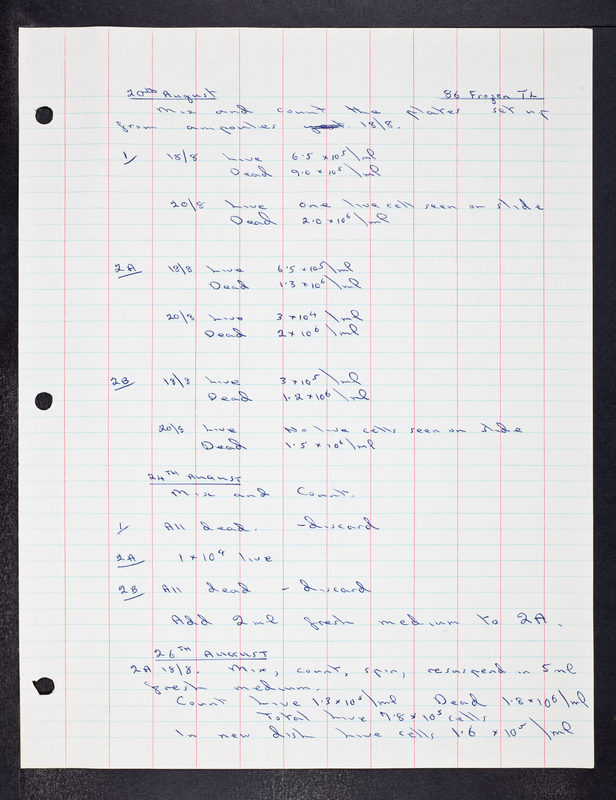 20th August 86 Frozen TL
Mix and count the plates set up
from ampoules 18/8.
1/ 18/8 Live 6.5 x 10⁵/ml
Dead 9.0 x 10⁵/ml
20/8 Live one live cell seen on slide
Dead 2.0 x 10⁶/ml
2A 18/8 Live 6.5 x 10⁵/ml
Dead 1.3 x 10⁶/ml
20/8 Live 3 x 10⁴/ml
Dead 2 x 10⁶/ml
2B 18/8 Live 3 x 10⁵/ml
Dead 1.2 x 10⁶/ml
20/8 Live No live cells seen on slide
Dead 1.5 x 10⁶/ml
24TH AUGUST
Mix and Count.
1/ All dead. - discard
2A 1 x 10⁴ live
2B All dead - discard
Add 2ml fresh medium to 2A.
26TH AUGUST
2A 18/8. Mix, count, spin, resuspend in 5ml
fresh medium.
Count Live 1.3 x 10⁵/ml Dead 1.8 x 10⁶/ml
Total live 7.8 x 10⁵ cells
In new dish Live cells 1.6 x 10⁵/ml